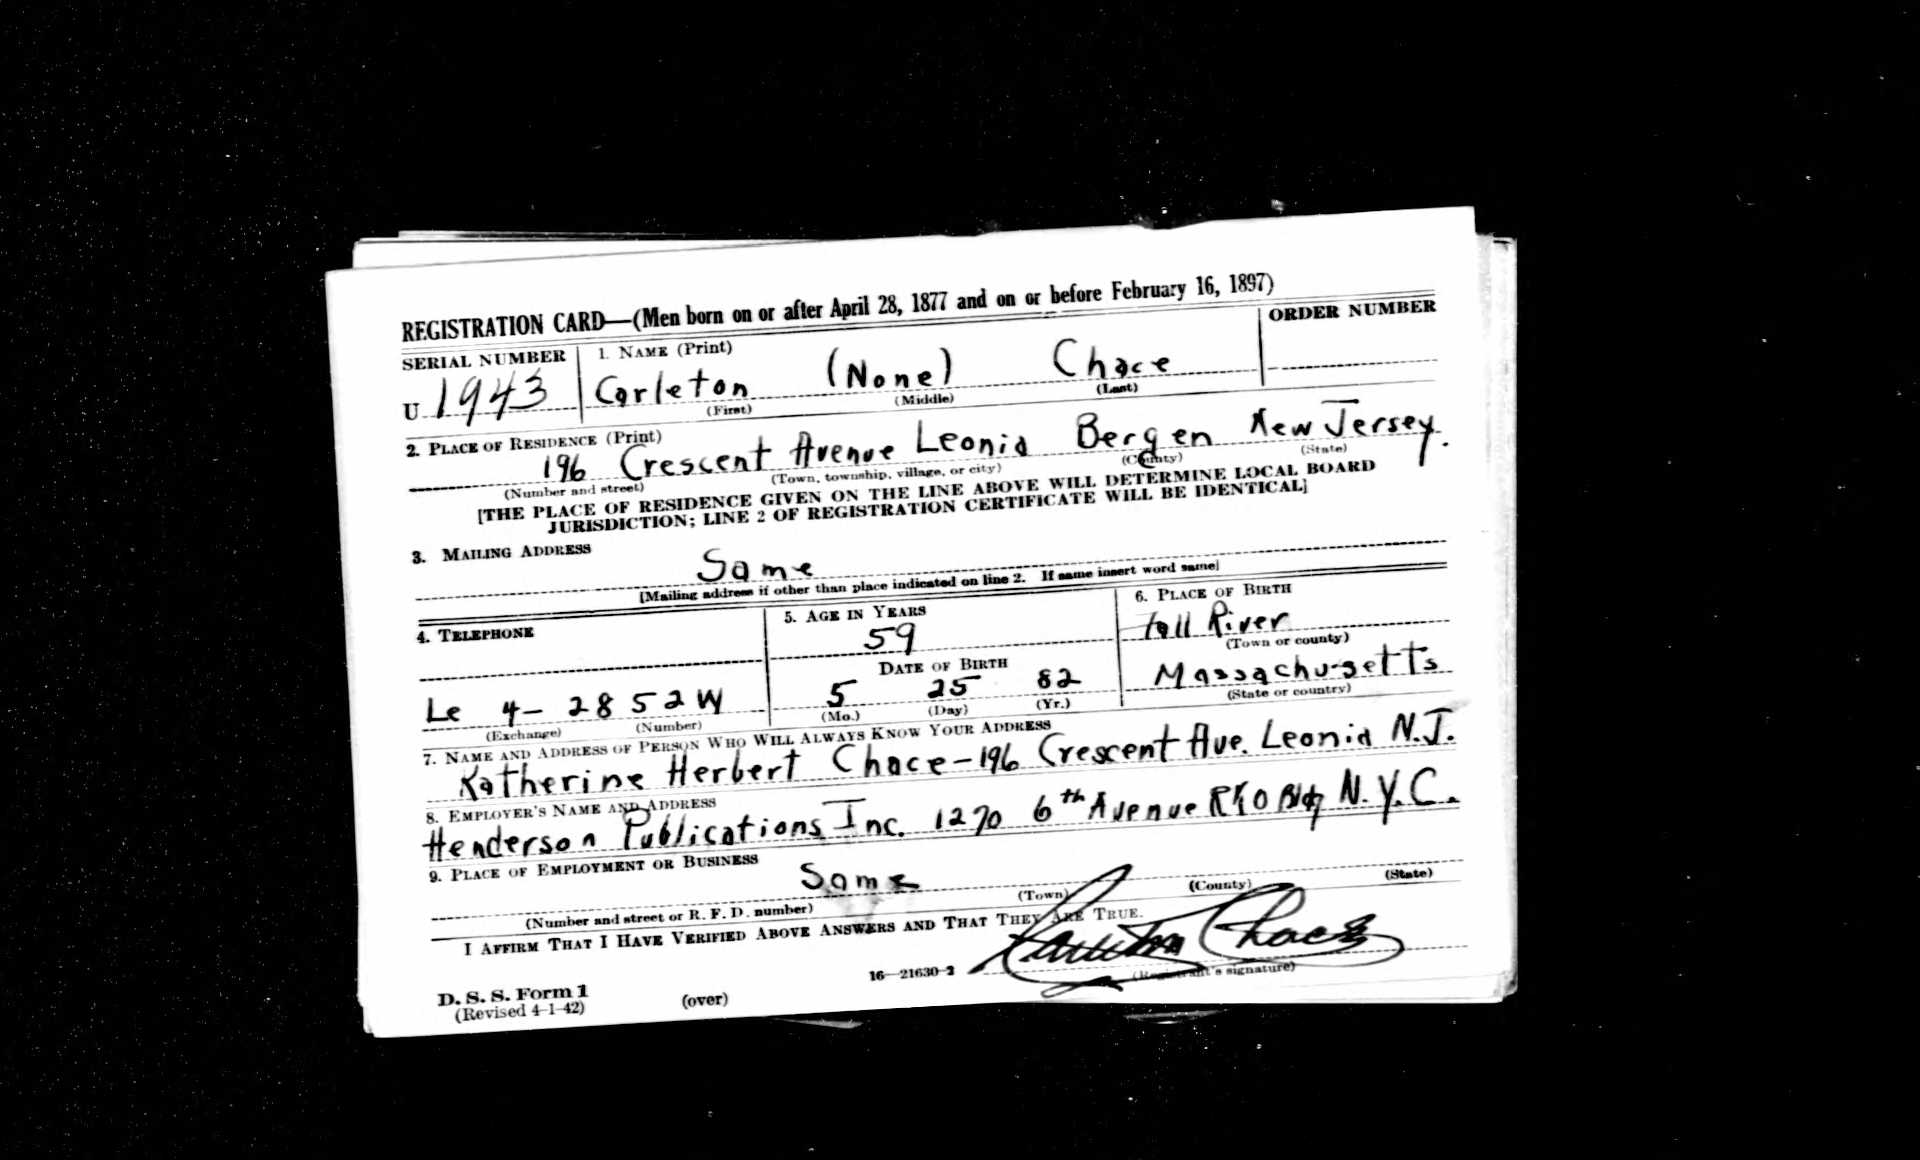 REGISTRATION CARD—(Men born on or after April 28, 1877 and on or before February 16, 1897)
SERIAL NUMBER
1. NAME (Print)
ORDER NUMBER
U 1943
Carleton (None) Chace
(First) (Middle) (Last)
2. PLACE OF RESIDENCE (Print)
196 Crescent Avenue Leonia Bergen New Jersey.
(Number and street) (Town, township, village, or city) (County) (State)
[THE PLACE OF RESIDENCE GIVEN ON THE LINE ABOVE WILL DETERMINE LOCAL BOARD
JURISDICTION; LINE 2 OF REGISTRATION CERTIFICATE WILL BE IDENTICAL]
3. MAILING ADDRESS
Same
[Mailing address if other than place indicated on line 2. If same insert word same]
4. TELEPHONE
5. AGE IN YEARS
6. PLACE OF BIRTH
59
Fall River
(Town or county)
DATE OF BIRTH
Le 4-2852W
5 25 82
Massachusetts
(Exchange) (Number)
(Mo.) (Day) (Yr.)
(State or country)
7. NAME AND ADDRESS OF PERSON WHO WILL ALWAYS KNOW YOUR ADDRESS
Katherine Herbert Chace-196 Crescent Ave. Leonia N.J.
8. EMPLOYER'S NAME AND ADDRESS
Henderson Publications Inc. 1270 6th Avenue RKO Bldg N.Y.C.
9. PLACE OF EMPLOYMENT OR BUSINESS
Same
(Number and street or R. F. D. number) (Town) (County) (State)
I AFFIRM THAT I HAVE VERIFIED ABOVE ANSWERS AND THAT THEY ARE TRUE.
Carleton Chace
D. S. S. Form 1
(Revised 4-1-42)
(over)
16—21630-2
(Registrant's signature)